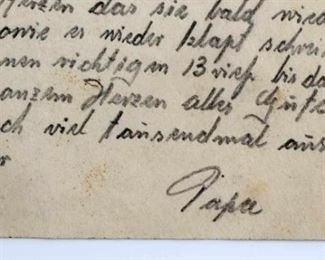 Herzen das sie bald wied
owie es wieder klapt schrei
nen richtigen 13 rief bis da
anzem Herzen alles Gute
ch viel tausendmal aus
er
Papa